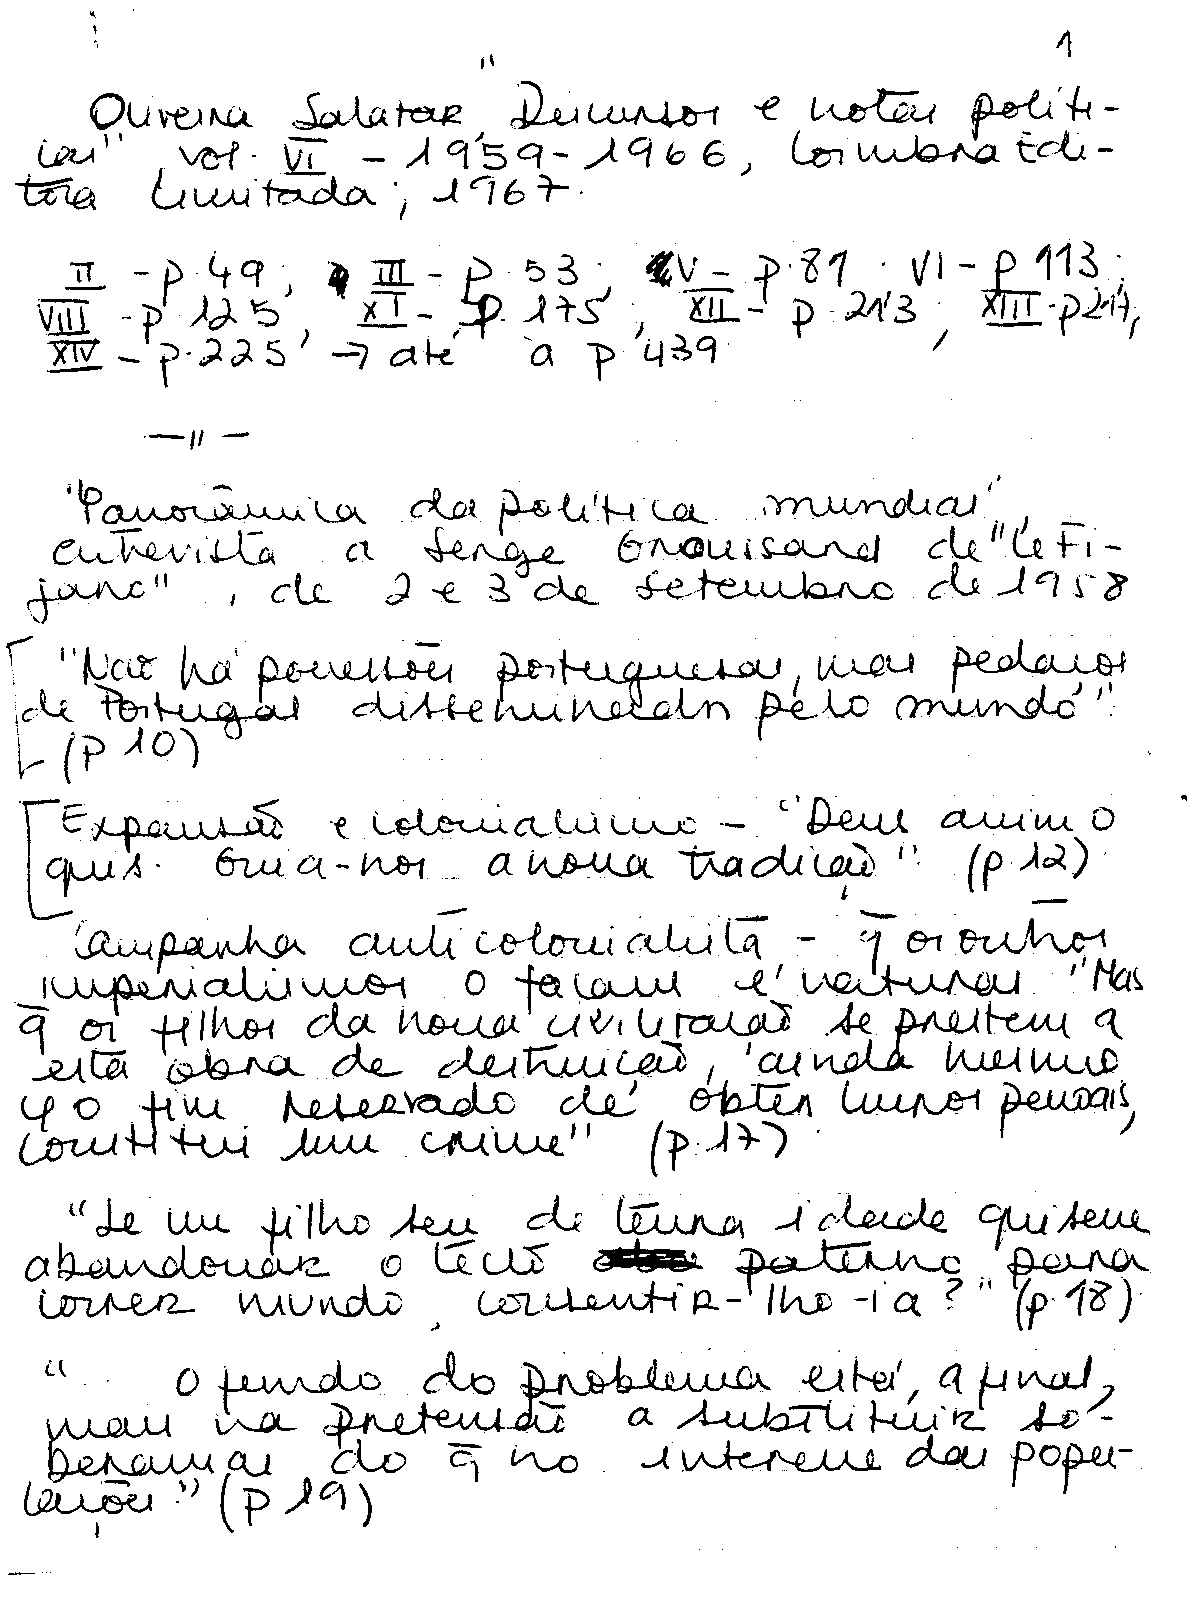 1
Oliveira Salazar, "Discursos e notas políti-
cas", vol. VI - 1959-1966, Coimbra Edi-
tora Limitada, 1967.
II - p. 49; III - p. 53; V - p. 81. VI - p 113;
VIII - p. 125, XI - p. 175, XII - p. 213, XIII - p 217,
XIV - p. 225 → até à p 439
— " —
"Panorâmica da política mundial",
entrevista a Serge Groussard de "Le Fi-
garo", de 2 e 3 de setembro de 1958
"Não há possessões portuguesas, mas pedaços
de Portugal disseminados pelo mundo".
(p 10)
Expansão e colonialismo - "Deus assim o
quis. Guia-nos a nossa tradição". (p. 12)
Campanha anticolonialista - q̄ os outros
imperialismos o façam é natural "Mas
q̄ os filhos da nossa civilização se prestem a
esta obra de destruição, ainda mesmo
q̄ o fim reservado de obter lucros pessoais,
constitui um crime" (p. 17)
"Se um filho seu de tenra idade quisesse
abandonar o tecto paterno para
correr mundo, consentir-lho-ia?" (p. 18)
"... O fundo do problema está, afinal,
mais na pretensão a substituir so-
beranias do q̄ no interesse das popu-
lações." (p 19)